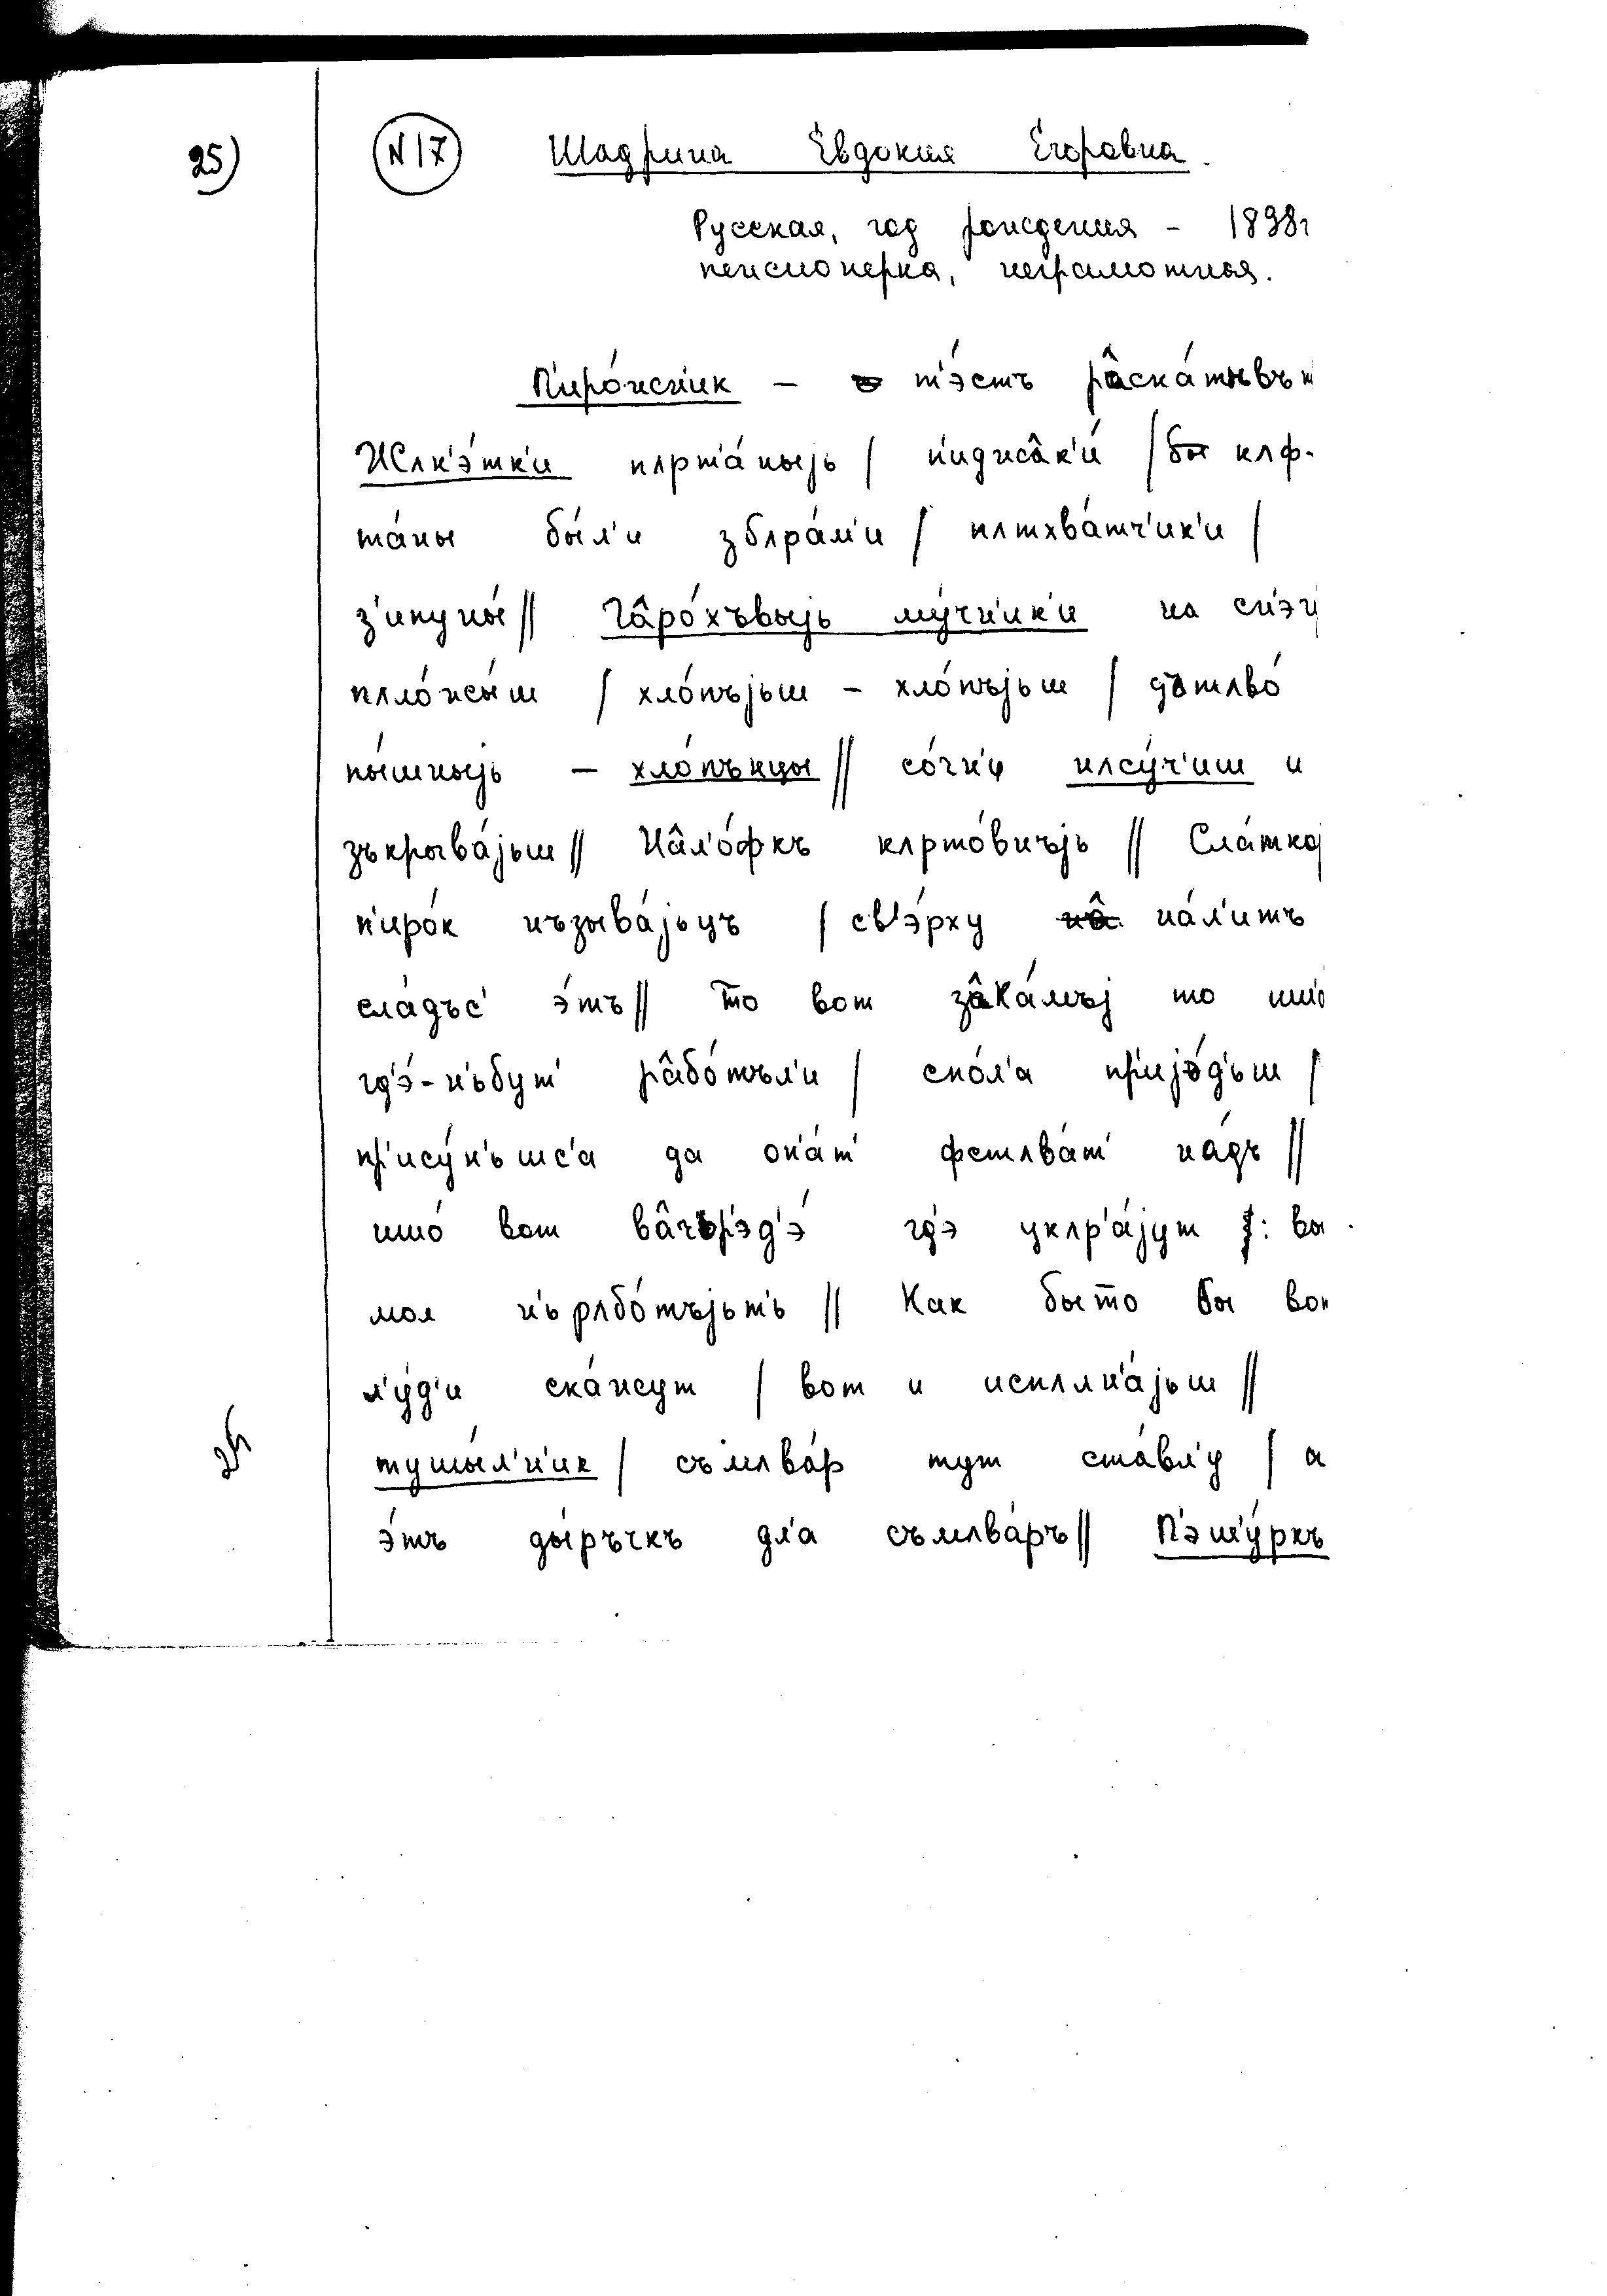 25) N17 Шадрина Евдокия Егоровна.
Русская, год рождения - 1898г
пенсионерка, неграмотная.
П'иро́жн'ик – т'э́стъ рâска́тывът
Жʌк'э́тк'и пʌрт'а́ныjь / п'иджâк'и́ / кʌф-
та́ны бы́л'и збʌра́м'и / пʌтхва́тч'ик'и /
з'ипуны́ // Гâро́хъвыjь му́чн'ик'и на сн'эг
пʌло́жыш / хло́пъjьш – хло́пъjьш / дътʌво́
пы́шныjь – хло́пънцы // со́чн'и нʌсу́ч'иш и
зъкрыва́jьш // Нâл'о́фкъ кʌрто́внъjь // Сла́ткъj
п'иро́к нъзыва́jьцъ / св'э́рху на́л'итъ
сла́дъс' э́тъ // То вот зâка́мъj то ишо
гд'э́-н'ьбут' рâбо́тъл'и / спо́л'а пр'иjо́д'ьш /
пр'ису́н'ьшс'а да оп'а́т' фстʌва́т' на́дъ //
ишо́ вот вâч'ьр'эд'э́ гд'э укʌр'а́jут j: вы
мол н'ьрʌбо́тъjьт'ь // Как быто бы вон
л'у́д'и ска́жут / вот и испʌлн'а́jьш //
тушы́л'н'ик / съмʌва́р тут ста́вл'у / а
э́тъ ды́ръчкъ дл'а съмʌва́ръ // П'эч'у́ркъ